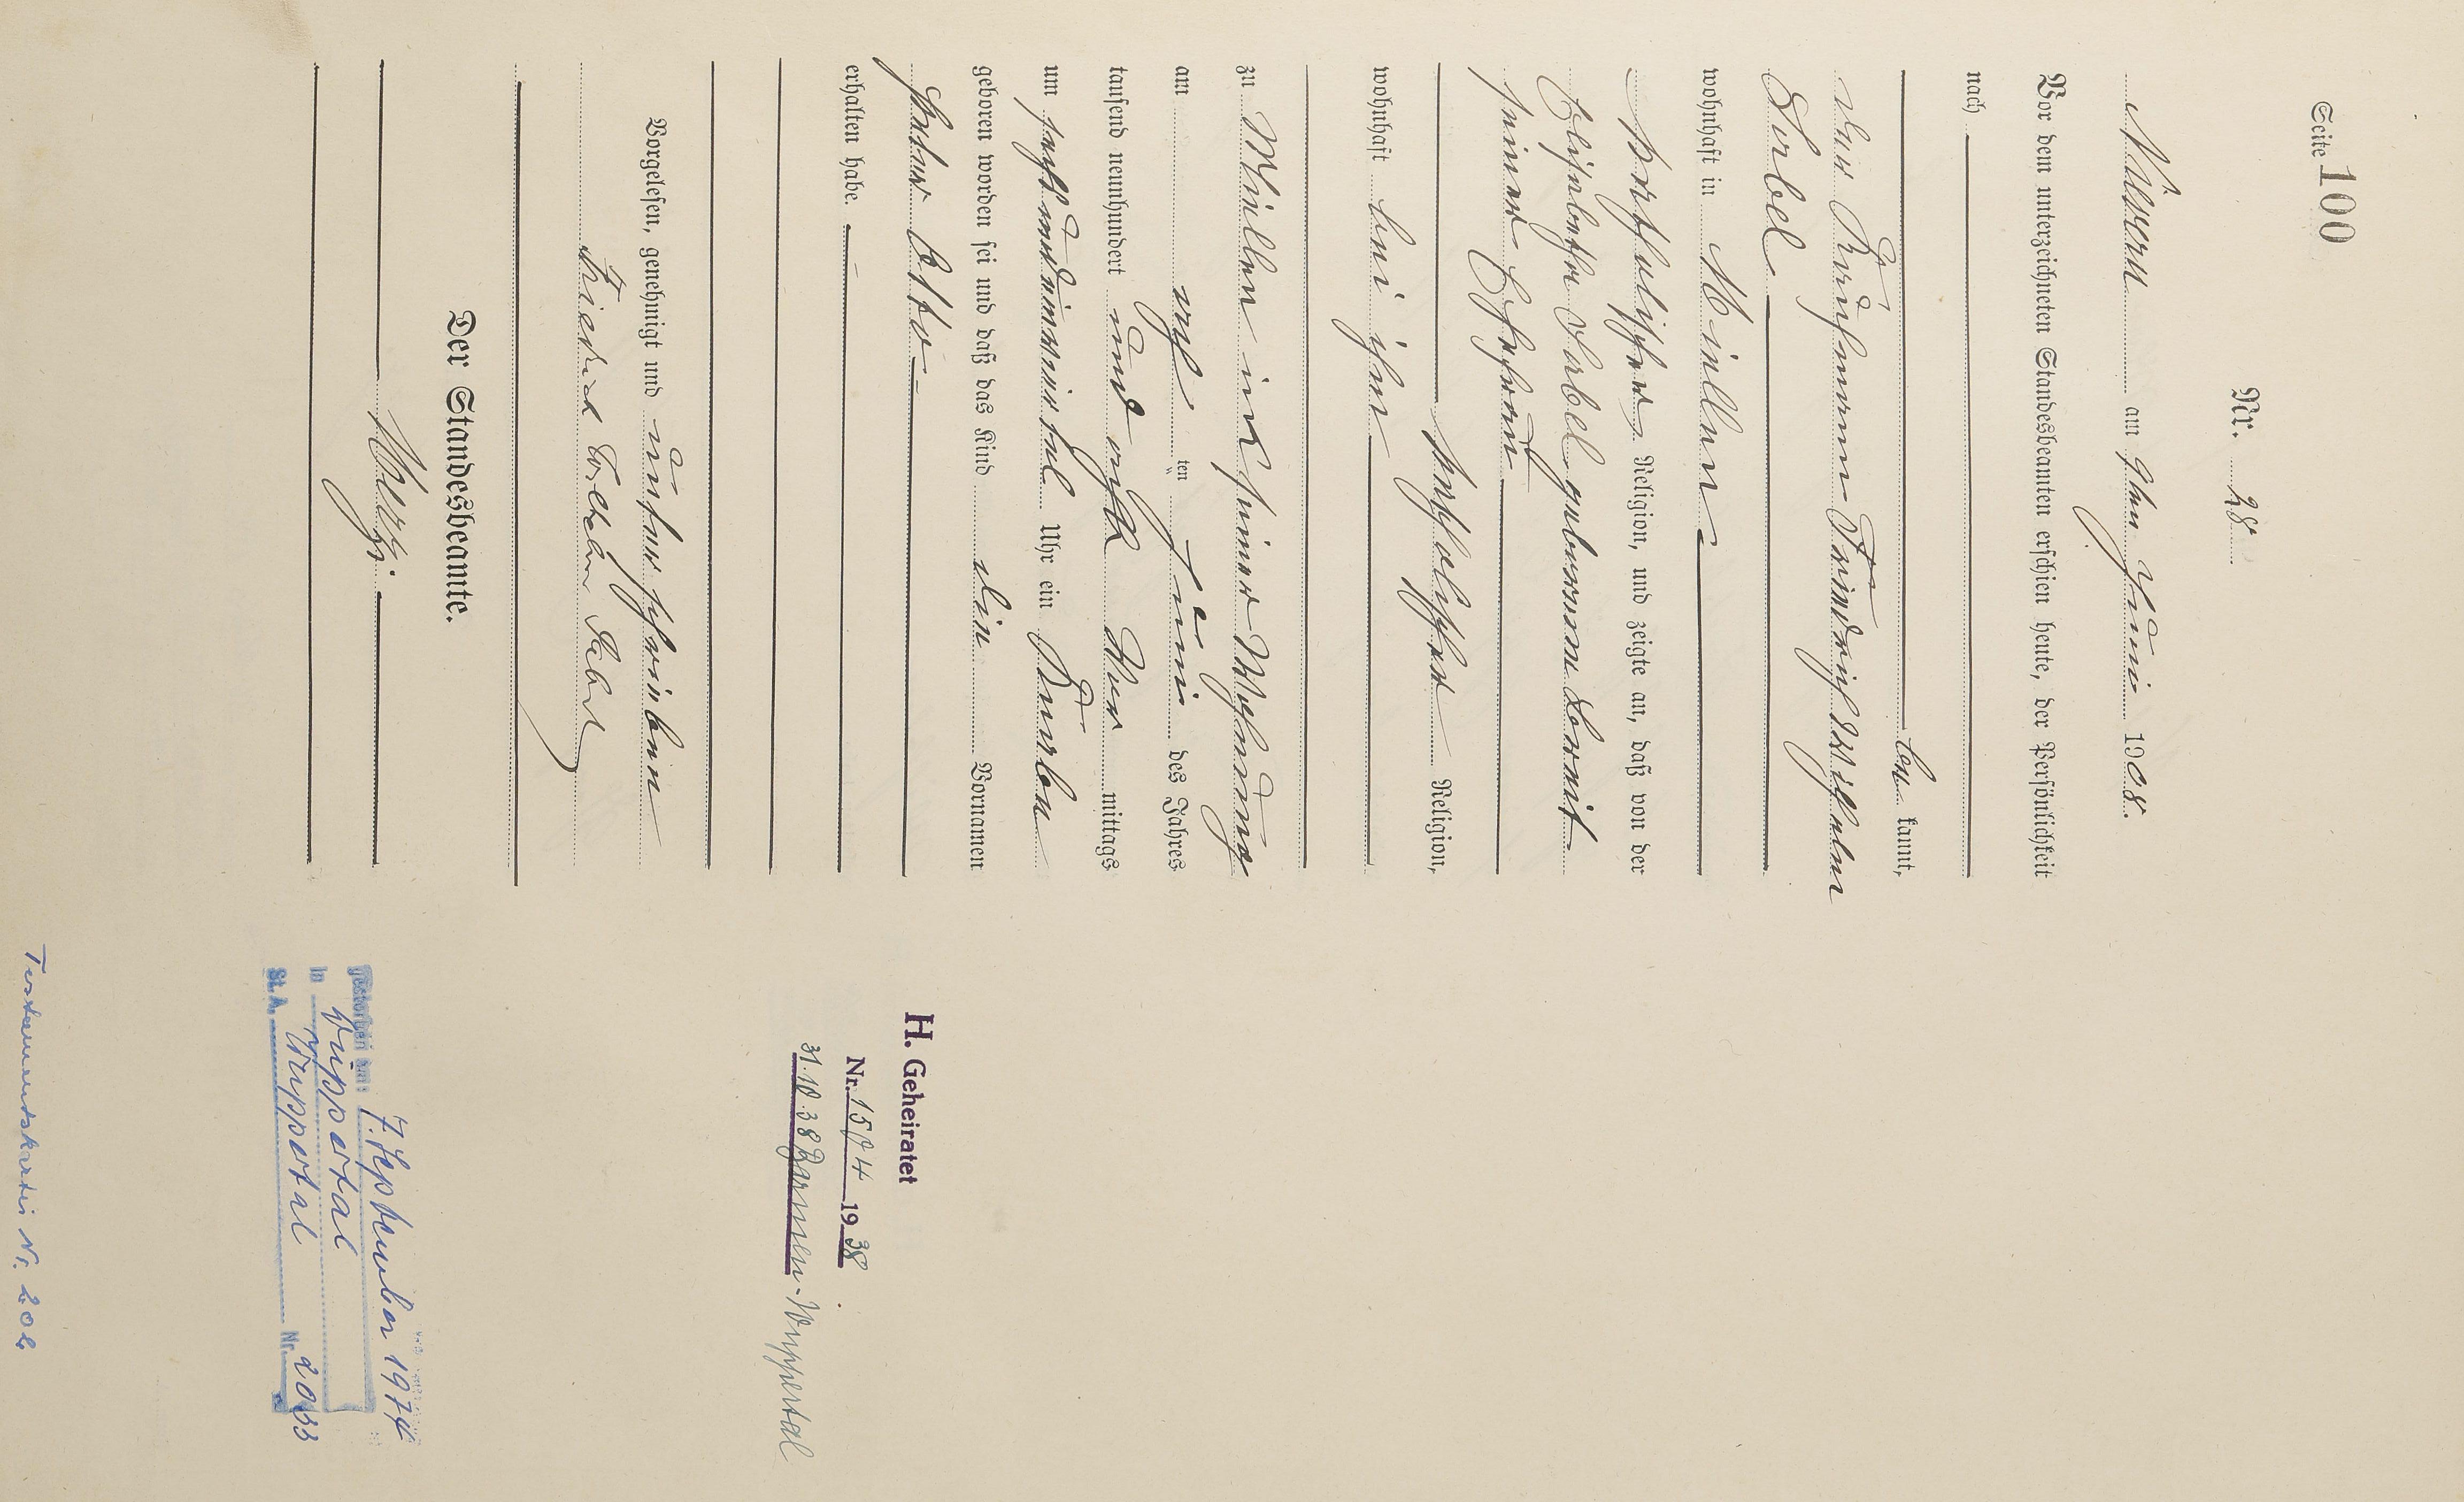 Seite 100
Nr. 28
am 9ten Juni 1908.
Vor dem unterzeichneten Standesbeamten erschien heute, der Persönlichkeit
nach
be kannt,
der Kaufmann Friedrich Wilhelm
Sabel
wohnhaft in Weillen
katholischer Religion, und zeigte an, daß von der
Elisabetha Sabel geborenen
seiner Ehefrau
katholischer Religion,
wohnhaft bei ihm
zu Weillen in seiner Wohnung
am acht ten Juni des Jahres
tausend neunhundert und acht Vor mittags
um sechseinviertel Uhr ein Knaben
geboren worden sei und daß das Kind die Vornamen
Peter Otto
erhalten habe.
Vorgelesen, genehmigt und unterschrieben
Friedrich Wilhelm Sabel
Der Standesbeamte.
H. Geheiratet
Nr. 1504 1938
31.10.38 Barmen-Wuppertal
gestorben am: 7. September 1974
in Wuppertal
St. A. Wuppertal Nr. 2033
Testamentskartei Nr. 202